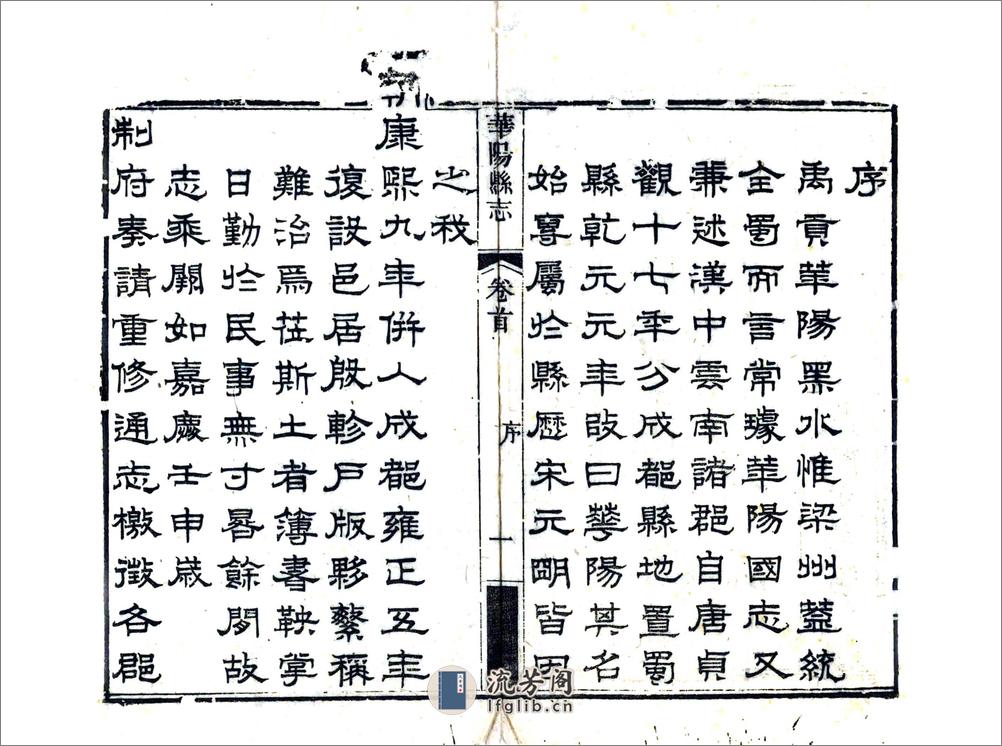 序
禹貢華陽黑水惟梁州蓋統
全蜀而言常璩華陽國志又
兼述漢中雲南諸郡自唐貞
觀十七年分成都縣地置蜀
縣乾元元年改曰華陽其名
始專屬於縣歷宋元明皆因
華陽縣志 卷首 序 一
之我
康熙九年併入成都雍正五年
復設邑居殷軫戶版夥繁稱
難治焉莅斯土者簿書鞅掌
日勤於民事無寸晷餘閒故
志乘闕如嘉慶壬申歲
制府奏請重修通志檄徵各郡
流芳阁
lfglib.cn